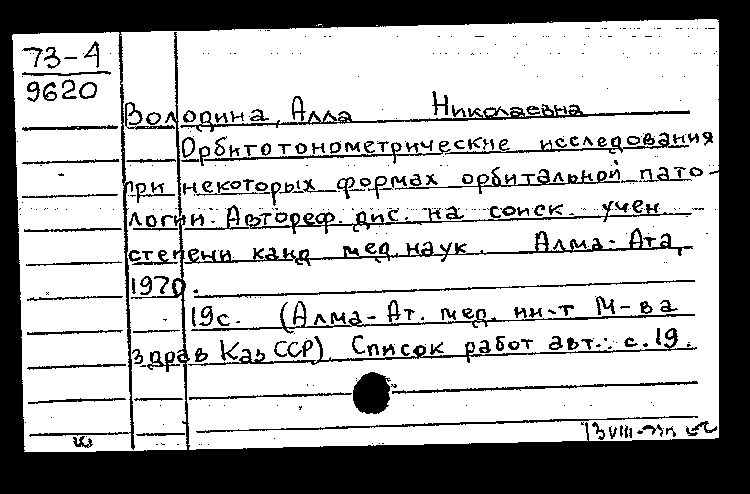 73-4
9620
Володина, Алла Николаевна
Орбитотонометрические исследования
при некоторых формах орбитальной пато-
логии. Автореф. дис. на соиск. учен.
степени канд. мед. наук. Алма-Ата,
1970.
19с. (Алма-Ат. мед. ин-т М-ва
здрав КазССР) Список работ авт.: с.19.